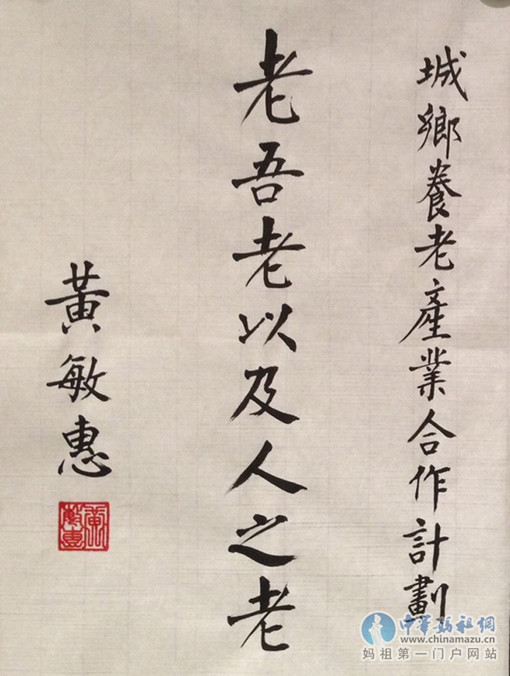 城鄉養老產業合作計劃
老吾老以及人之老
黃敏惠
黃敏惠
中華媽祖網
www.chinamazu.cn
妈祖第一门户网站